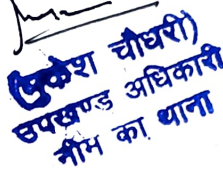 चौधरी)
उपखण्ड अधिकारी
नीम का थाना